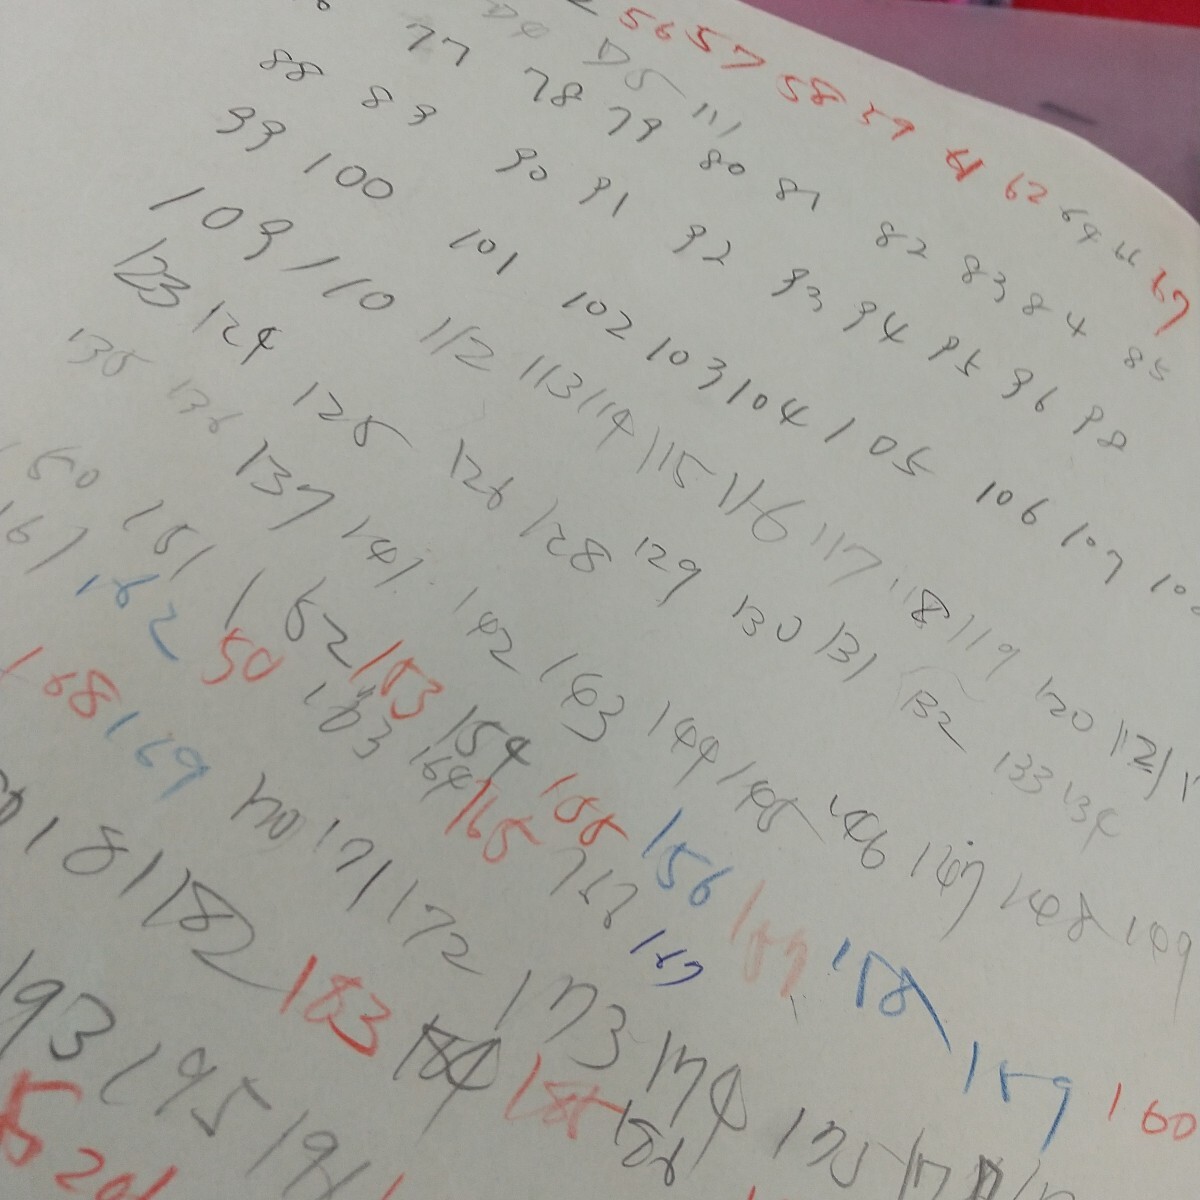 56 57 58 59 61 62 64 66 67
77 78 79 80 81 82 83 84 85
88 89 90 91 92 93 94 95 96 98
99 100 101 102 103 104 105 106 107
109 110 112 113 114 115 116 117 118 119 120 121
123 124 125 126 128 129 130 131 132 133 134
135 136 137 141 142 143 144 145 146 147 148 149
150 151 152 153 154 155 156 157 158 159 160
161 162 50 163 164 165 167
168 169 170 171 172 173 174 175
181 182 183 184 185 186
193 195